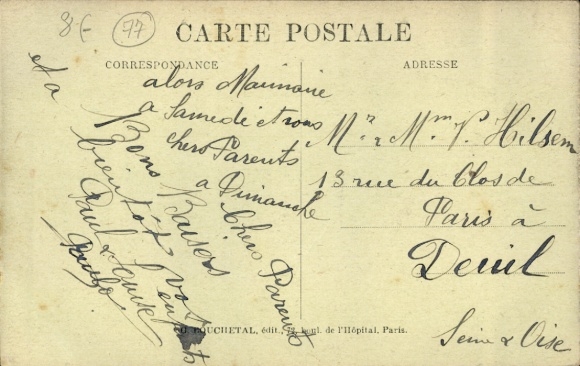 8€ 77
CARTE POSTALE
CORRESPONDANCE
ADRESSE
alors Mamaie
a Samedi et vous
chers Parents
a Dimanche
Chers Parents
Bons Baisers
et a
bientôt vos enfants
Paul & Louise
Mr & Mme P. Hilsem
13 rue du Clos de
Paris à
Deuil
Seine & Oise
COUCHETAL, édit., 77, boul. de l'Hôpital, Paris.